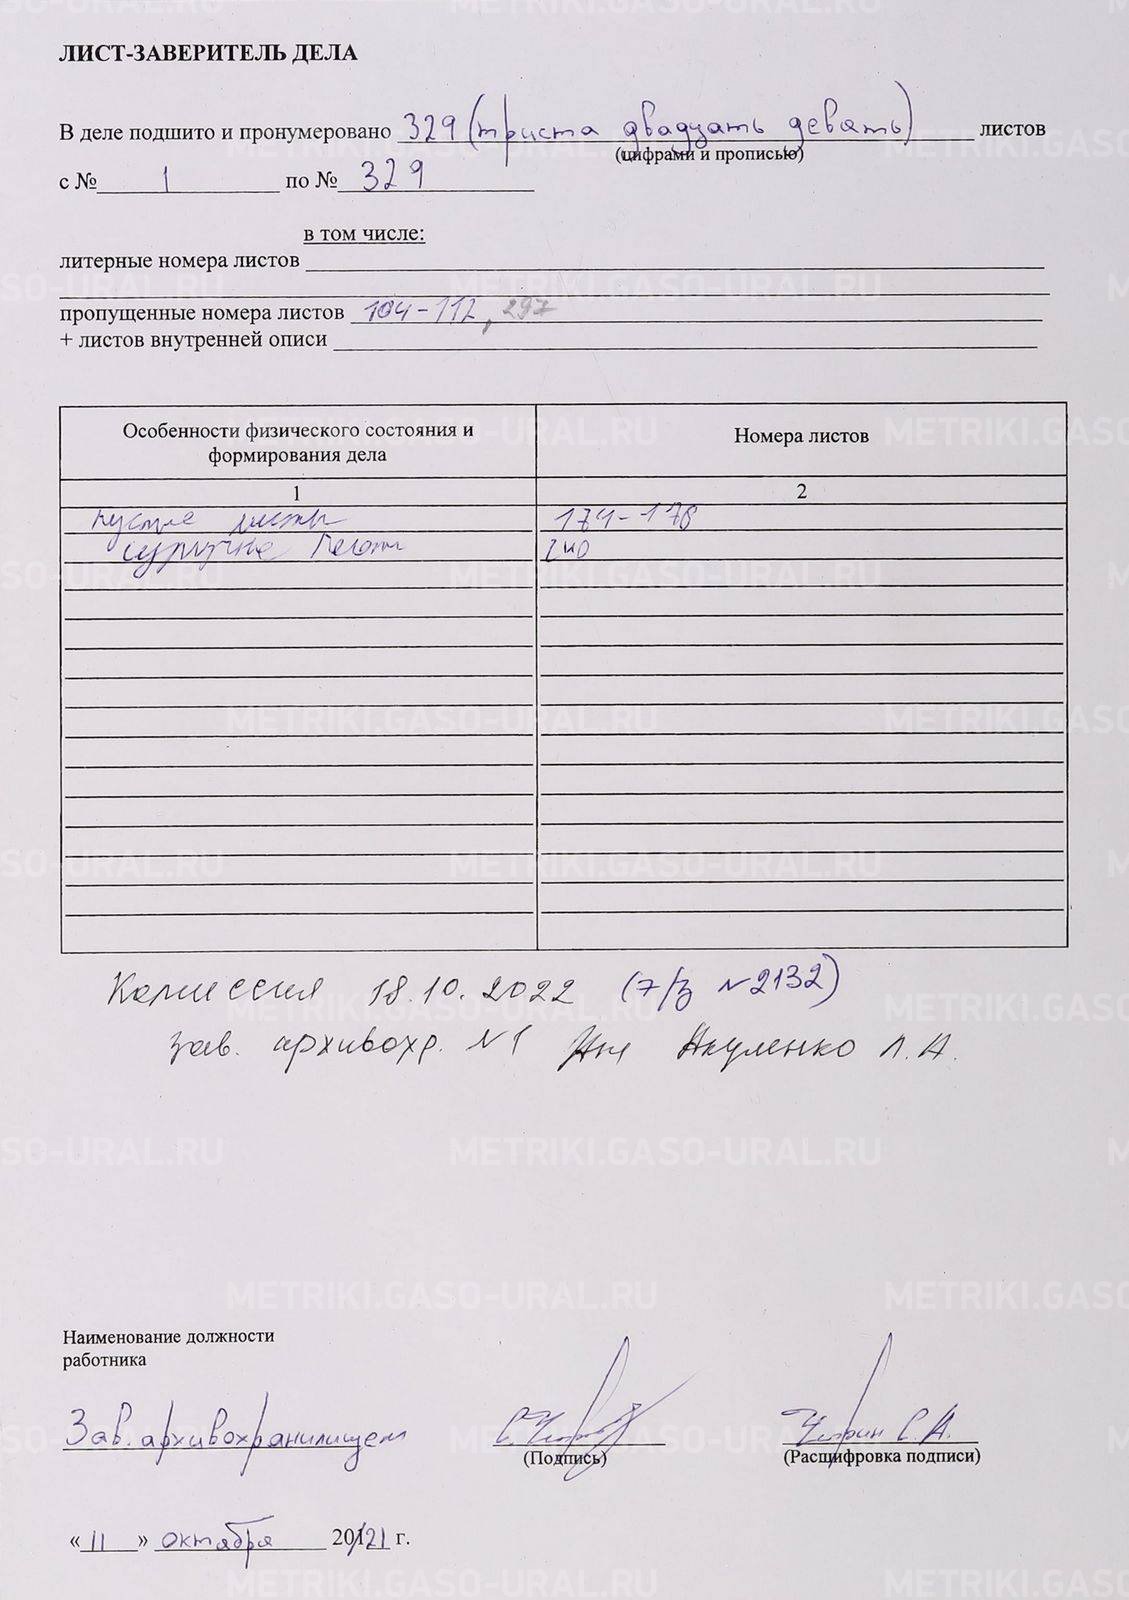 ЛИСТ-ЗАВЕРИТЕЛЬ ДЕЛА
В деле подшито и пронумеровано 329 (триста двадцать девять) листов
(цифрами и прописью)
с № 1 по № 329
в том числе:
литерные номера листов
пропущенные номера листов 104-112, 297
+ листов внутренней описи
Особенности физического состояния и формирования дела
Номера листов
1 2
пустые листы 174-178
сургучные печати 240
Комиссия 18.10.2022 (т/з №2132)
зав. архивохр. №1 Акуленко Л.А.
Наименование должности
работника
Зав. архивохранилищем
(Подпись) (Расшифровка подписи)
«11» октября 2021 г.
METRIKI.GASO-URAL.RU